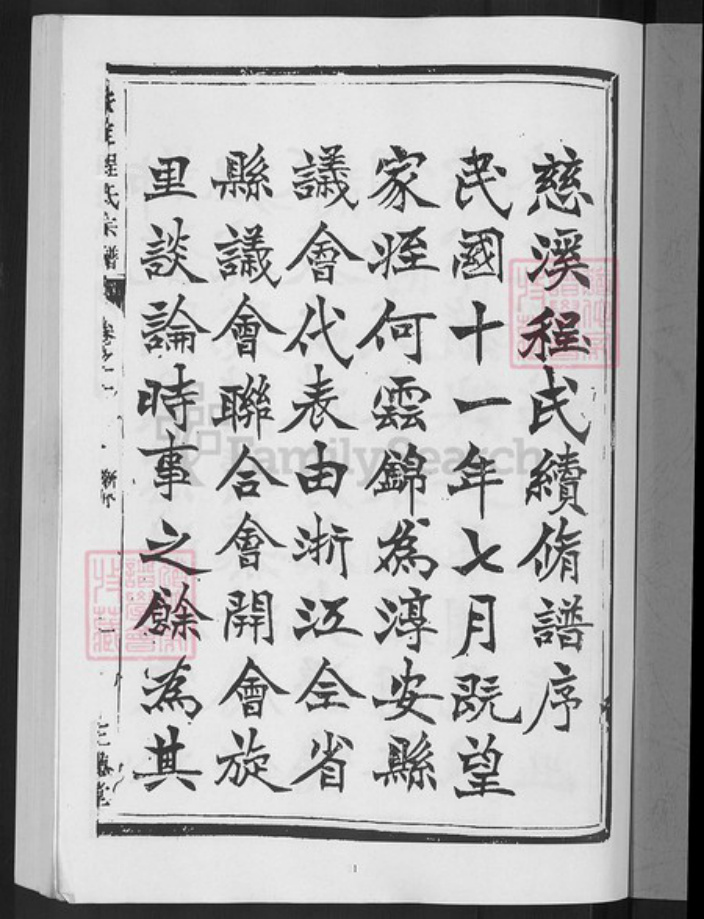 慈溪程氏續脩譜序
民國十一年七月既望
家姪何雲錦為淳安縣
議會代表由浙江仝省
縣議會聯合會開會旋
里談論時事之餘為其
程氏宗譜
卷之
FamilySearch
1